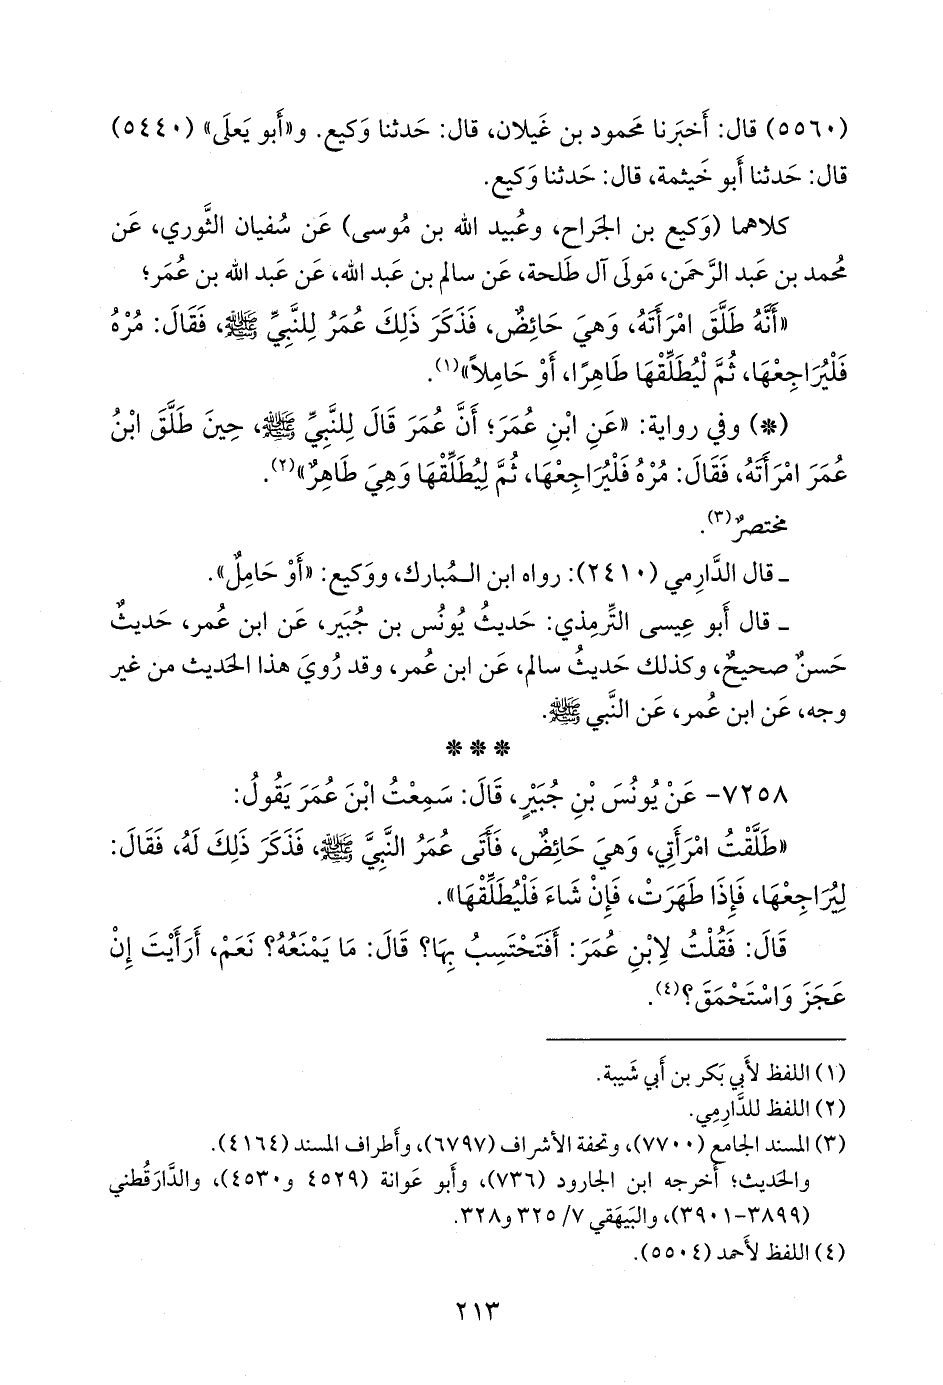 (٥٥٦٠) قال: أَخبَرنا محمود بن غَيلان، قال: حَدثنا وَكيع. و«أَبو يَعلَى» (٥٤٤٠)
قال: حَدثنا أَبو خَيثمة، قال: حَدثنا وَكيع.
كلاهما (وَكيع بن الجَراح، وعُبيد الله بن مُوسى) عَن سُفيان الثَّوري، عَن
مُحمد بن عَبد الرَّحمَن، مَولَى آل طَلحة، عَن سالم بن عَبد الله، عَن عَبد الله بن عُمَر؛
«أَنَّهُ طَلَّقَ امْرَأَتَهُ، وَهِيَ حَائِضٌ، فَذَكَرَ ذَلِكَ عُمَرُ لِلنَّبِيِّ ﷺ، فَقَالَ: مُرْهُ
فَلْيُرَاجِعْهَا، ثُمَّ لْيُطَلِّقْهَا طَاهِرًا، أَوْ حَامِلاً»(١).
(*) وفي رواية: «عَنِ ابْنِ عُمَرَ؛ أَنَّ عُمَرَ قَالَ لِلنَّبِيِّ ﷺ، حِينَ طَلَّقَ ابْنُ
عُمَرَ امْرَأَتَهُ، فَقَالَ: مُرْهُ فَلْيُرَاجِعْهَا، ثُمَّ لِيُطَلِّقْهَا وَهِيَ طَاهِرٌ»(٢).
مختصرٌ(٣).
ـ قال الدَّارِمي (٢٤١٠): رواه ابن الـمُبارك، ووَكيع: «أَوْ حَامِلٌ».
ـ قال أَبو عِيسى التِّرمِذي: حَديثُ يُونُس بن جُبَير، عَن ابن عُمر، حَديثٌ
حَسنٌ صحيحٌ، وكذلك حَديثُ سالم، عَن ابن عُمر، وقد رُويَ هذا الحَديث من غير
وجه، عَن ابن عُمر، عَن النَّبي ﷺ.
* * *
٧٢٥٨- عَنْ يُونُسَ بْنِ جُبَيْرٍ، قَالَ: سَمِعْتُ ابْنَ عُمَرَ يَقُولُ:
«طَلَّقْتُ امْرَأَتِي، وَهِيَ حَائِضٌ، فَأَتَى عُمَرُ النَّبِيَّ ﷺ، فَذَكَرَ ذَلِكَ لَهُ، فَقَالَ:
لِيُرَاجِعْهَا، فَإِذَا طَهَرَتْ، فَإِنْ شَاءَ فَلْيُطَلِّقْهَا».
قَالَ: فَقُلْتُ لِابْنِ عُمَرَ: أَفَتَحْتَسِبُ بِهَا؟ قَالَ: مَا يَمْنَعُهُ؟ نَعَمْ، أَرَأَيْتَ إِنْ
عَجَزَ وَاسْتَحْمَقَ؟(٤).
(١) اللفظ لأَبي بَكر بن أَبي شَيبة.
(٢) اللفظ للدَّارِمِي.
(٣) المسند الجامع (٧٧٠٠)، وتحفة الأَشراف (٦٧٩٧)، وأَطراف المسند (٤١٦٤).
والحَديث؛ أَخرجه ابن الجارود (٧٣٦)، وأَبو عَوانة (٤٥٢٩ و٤٥٣٠)، والدَّارَقُطني
(٣٨٩٩-٣٩٠١)، والبَيهَقي ٧/ ٣٢٥ و٣٢٨.
(٤) اللفظ لأَحمد (٥٥٠٤).
٢١٣